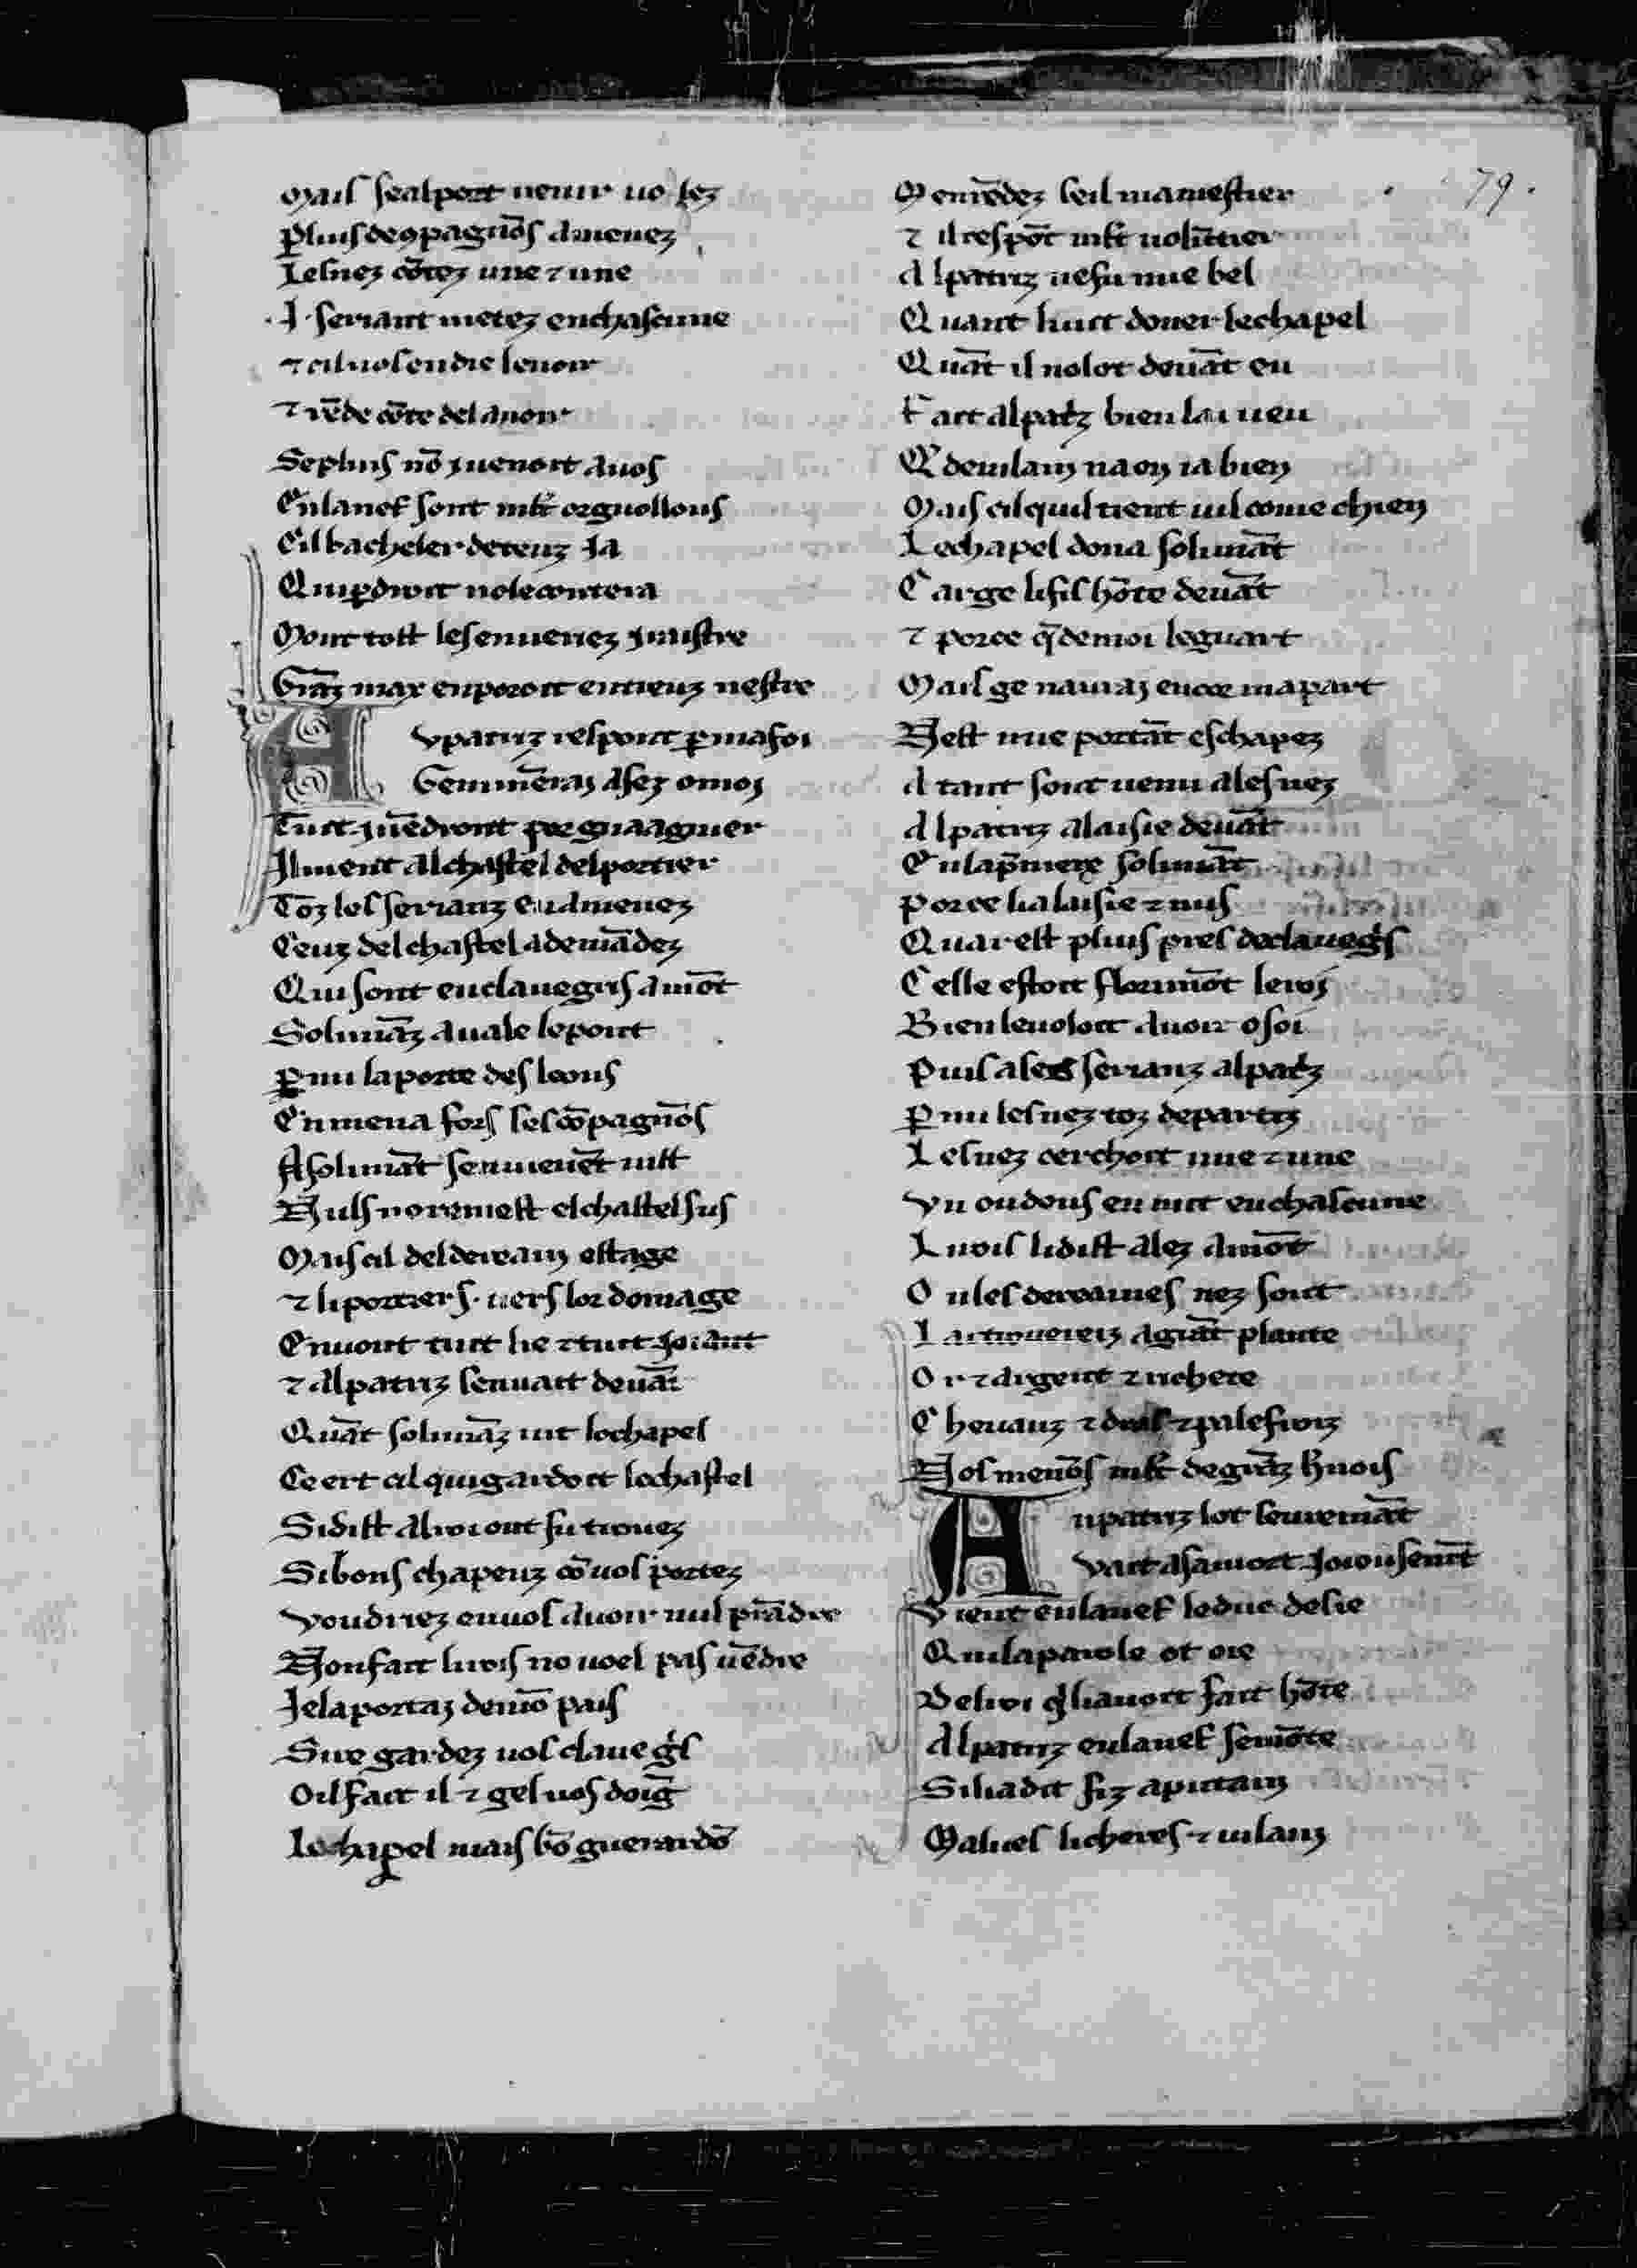 Mais sealport uenir uolez
ꝑ lluisdeꝯpagnōs amenez
Lesnez cōtez une ⁊ une
.I. seriant metez enchascune
⁊ cil uos endie leuoir
⁊ rēde cōte del auoir
Se plus nō i uenoit auos
En lanef sont mlt̄ orguollous
Cil bacheler deceuz ia
Qui ꝑdroit nole contera
Mont tost les enuenez i maistre
Grāz max en poroit entreuz nestre
A upatriz respont ꝑ mafoi
Gen mēeraz asez o moi
Tuit i uēdront por guaagnier
Il uient al chastel del portier
Toz les serianz en amenez
Ceuz del chastel a demādez
Qui sont en clauegris amōt
Solimāz auale le pont
ꝑ mi la porte des leons
En mena fors les cōpagnōs
A solimāt sen uienēt tuit
Nuls no remest el chastel sus
Mais cil del dereain estage
⁊ li portiers. uers lor domage
En uont tuit lie ⁊ tuit ioiant
⁊ Alpatriz sen uait deuāt
Quāt solimāz uit lo chapel
Ce ert cil qui gardoit le chastel
Si dist a lui ont fu trouez
Si bons chapeuz cō uos portez
Voudriez en uos auoir nul prādre
Non fait li rois no uoel pas uēdre
Je laportaz de mō pais
Sire gardez uos claueg̓s
Oil fait il ⁊ gel uos doig̃
Lo chapel mais bō guerardō
79.
M en rēdez seil ma mestier
⁊ il respōt mlt̄ uolūtier
A lpatriz ne fu mie bel
Quant li uit doner le chapel
Quāt il no lot deuāt eu
Fait alpat̓z bien lai ueu
Q̓ deuilain na on ia bien
Mais cil quil tient uil come chien
Le chapel dona solimāt
C arge li fis hōte deuāt
⁊ por ce q̄ de moi le guart
Mais ge nauraj encor ma part
Nest mie portāt eschapez
A tant sont uenu ales nez
A lpatriz a laisie deuāt
En la p̄miere solimāt
Por ce lia laisie ⁊ mis
Quar est pluis pres de claueg̓s
Celle estoit florimōt le roi
Bien le uoloit auoir o soi
Puis a les serianz alpat̓z
ꝑ mi les nez toz departiz
Les nez cerchoit une ⁊ une
Vn ou dous en mit en chascune
L i rois li dist alez amōt
O u les dereaines nez sont
L ai trouereiz a grāt plante
Or ⁊ argent ⁊ richete
Cheuauz ⁊ dras ⁊ palefroiz
Nos menōs mlt̄ de grāz h̓nois
A upatriz lot leuremāt
Vait a sa mort ioiousemt̄
Vient en lanef le duc de sie
Qui la parole ot oie
De lui q̓ li auoit fait hōte
Alpatriz en lanef se mōte
Si li a dit fiz a putain
Maluels licheres ⁊ uilainz